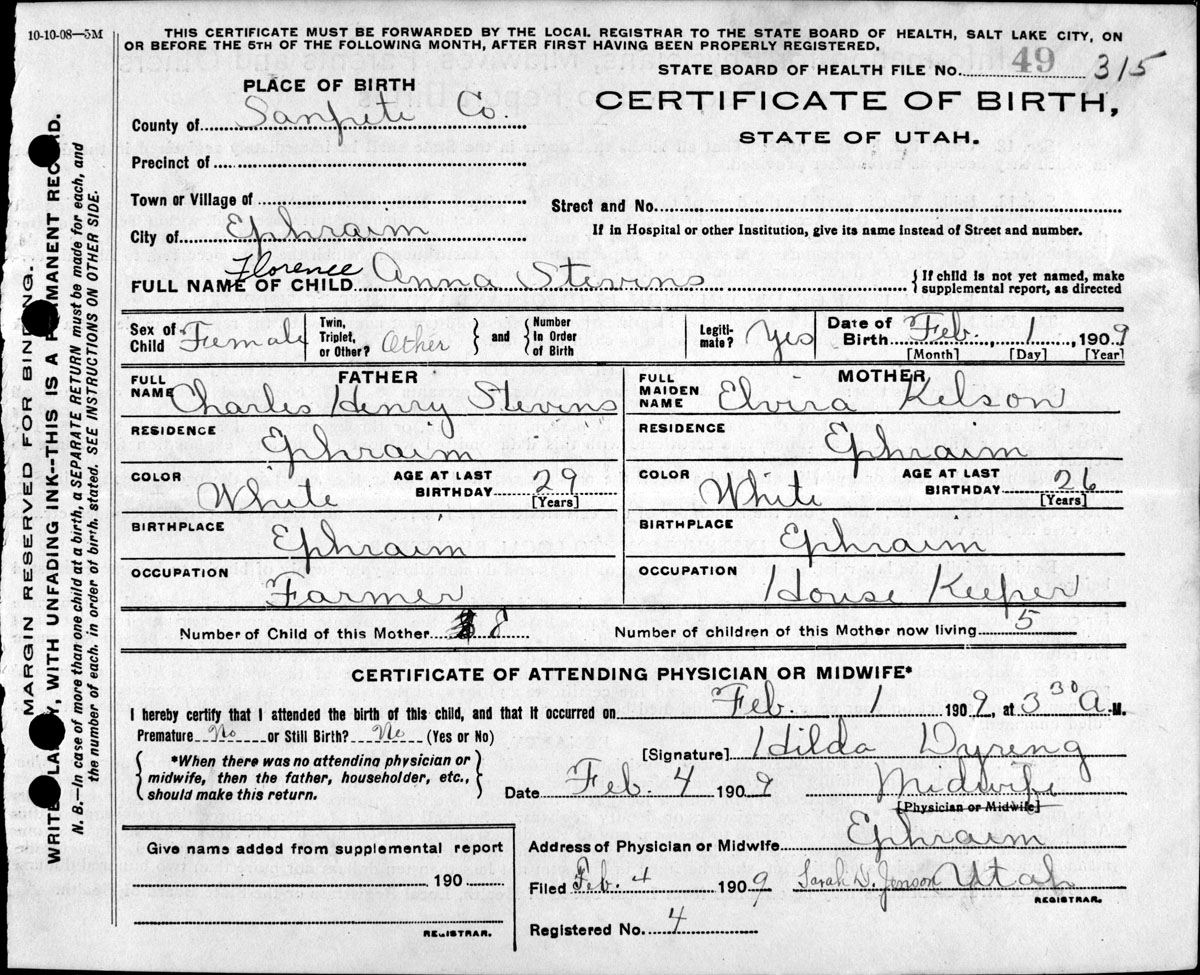 10-10-08—5M
THIS CERTIFICATE MUST BE FORWARDED BY THE LOCAL REGISTRAR TO THE STATE BOARD OF HEALTH, SALT LAKE CITY, ON
OR BEFORE THE 5TH OF THE FOLLOWING MONTH, AFTER FIRST HAVING BEEN PROPERLY REGISTERED.
STATE BOARD OF HEALTH FILE No. 49 315
CERTIFICATE OF BIRTH,
STATE OF UTAH.
PLACE OF BIRTH
County of Sanpete Co.
Precinct of
Town or Village of
Street and No.
City of Ephraim
If in Hospital or other Institution, give its name instead of Street and number.
FULL NAME OF CHILD Florence Anna Stevens
{If child is not yet named, make
supplemental report, as directed
Sex of Child Female
Twin, Triplet, or Other? Other } and { Number In Order of Birth
Legiti-mate? Yes
Date of Birth Feb. 1, 1909
[Month] [Day] [Year]
FATHER
FULL NAME Charles Henry Stevens
RESIDENCE Ephraim
COLOR White AGE AT LAST BIRTHDAY 29
[Years]
BIRTHPLACE Ephraim
OCCUPATION Farmer
MOTHER
FULL MAIDEN NAME Elvira Kelson
RESIDENCE Ephraim
COLOR White AGE AT LAST BIRTHDAY 26
[Years]
BIRTHPLACE Ephraim
OCCUPATION House Keeper
Number of Child of this Mother 8
Number of children of this Mother now living 5
CERTIFICATE OF ATTENDING PHYSICIAN OR MIDWIFE*
I hereby certify that I attended the birth of this child, and that it occurred on Feb. 1 1909, at 3 30 A M.
Premature No or Still Birth? No (Yes or No)
{*When there was no attending physician or
midwife, then the father, householder, etc.,
should make this return.}
[Signature] Hilda Dyreng
Date Feb. 4 1909 Midwife
[Physician or Midwife]
Address of Physician or Midwife Ephraim
Filed Feb. 4 1909 Sarah D. Jenson Utah
REGISTRAR.
Registered No. 4
Give name added from supplemental report
190
REGISTRAR.
MARGIN RESERVED FOR BINDING.
WRITE PLAINLY, WITH UNFADING INK--THIS IS A PERMANENT RECORD.
N. B.—In case of more than one child at a birth, a SEPARATE RETURN must be made for each, and
the number of each, in order of birth, stated. SEE INSTRUCTIONS ON OTHER SIDE.